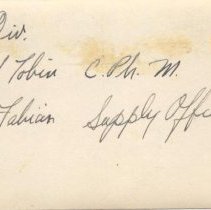 Div.
Tobin C. Ph. M.
Fabian Supply Offi